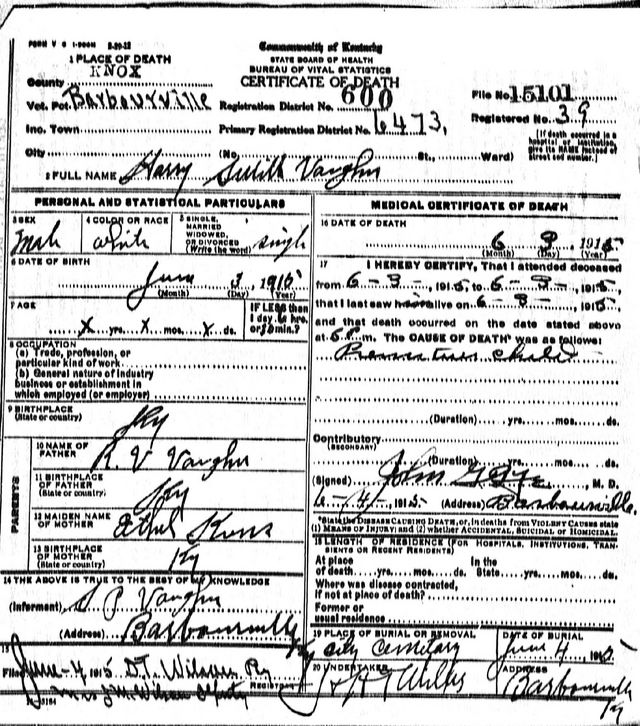 FORM V S 1-500M 3-29-12
Commonwealth of Kentucky
STATE BOARD OF HEALTH
BUREAU OF VITAL STATISTICS
CERTIFICATE OF DEATH
1 PLACE OF DEATH
County KNOX
Vot. Pct. Barbourville Registration District No. 600 File No. 15101
Inc. Town Primary Registration District No. 6473. Registered No. 39
City (No. St., Ward)
[If death occurred in a hospital or institution, give its NAME instead of street and number.]
2 FULL NAME Harry Vaughn
PERSONAL AND STATISTICAL PARTICULARS
3 SEX Male
4 COLOR OR RACE White
5 SINGLE, MARRIED WIDOWED, OR DIVORCED (Write the word) single
6 DATE OF BIRTH
June 3, 1915
(Month) (Day) (Year)
7 AGE
X yrs. X mos. X ds.
IF LESS than 1 day, 6 hrs. or min.?
8 OCCUPATION
(a) Trade, profession, or particular kind of work
(b) General nature of industry business or establishment in which employed (or employer)
9 BIRTHPLACE (State or country) Ky
PARENTS
10 NAME OF FATHER R. V Vaughn
11 BIRTHPLACE OF FATHER (State or country) Ky
12 MAIDEN NAME OF MOTHER Ethel
13 BIRTHPLACE OF MOTHER Ky
14 THE ABOVE IS TRUE TO THE BEST OF MY KNOWLEDGE
(Informant) P Vaughn
(Address) Barbourville Ky
15
Filed June-4 1915 D.T. Wilson
REGISTRAR
Mrs J M Wilson Deputy
MEDICAL CERTIFICATE OF DEATH
16 DATE OF DEATH
6 3, 1915
(Month) (Day) (Year)
17 I HEREBY CERTIFY, That I attended deceased
from 6-3-, 1915 to 6-3-, 1915
that I last saw him alive on 6-3-, 1915
and that death occurred on the date stated above
at 5 P. m. The CAUSE OF DEATH* was as follows:
Premature child
(Duration) yrs. mos. ds.
Contributory (SECONDARY)
(Duration) yrs. mos. ds.
(Signed) John , M. D.
6-4-, 1915 (Address) Barbourville.
*State the DISEASE CAUSING DEATH, or, in deaths from VIOLENT CAUSES state (1) MEANS OF INJURY; and (2) whether ACCIDENTAL, SUICIDAL or HOMICIDAL.
18 LENGTH OF RESIDENCE (FOR HOSPITALS, INSTITUTIONS, TRANSIENTS OR RECENT RESIDENTS)
At place of death yrs. mos. ds. In the State yrs. mos. ds.
Where was disease contracted, if not at place of death?
Former or usual residence
19 PLACE OF BURIAL OR REMOVAL City Cemetery
DATE OF BURIAL June 4 1915
20 UNDERTAKER
ADDRESS Barbourville Ky